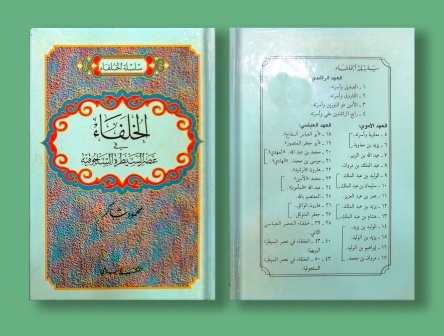 سلسلة الخلفاء
الخلفاء
في
عصر السيطرة السلجوقية
محمود شاكر
المكتب الإسلامي
سلسلة الخلفاء
العهد الراشدي
١ - الصديق وأسرته.
٢ - الفاروق وأسرته.
٣ - الأمين ذو النورين وأسرته.
٤ - رابع الراشدين علي وأسرته.
العهد الأموي:
٥ - معاوية وأسرته.
٦ - يزيد بن معاوية
٧ - عبد الله بن الزبير.
٨ - عبد الملك بن مروان.
٩ - الوليد بن عبد الملك.
١٠ - سليمان بن عبد الملك.
١١ - عمر بن عبد العزيز.
١٢ - يزيد بن عبد الملك.
١٣ - هشام بن عبد الملك.
١٤ - الوليد بن يزيد.
١٥ - يزيد بن الوليد.
١٦ - إبراهيم بن الوليد.
١٧ - مروان بن محمد.
العهد العباسي:
١٨ - أبو العباس السفاح.
١٩ - أبو جعفر المنصور.
٢٠ - محمد بن عبد الله «المهدي».
٢١ - موسى بن محمد «الهادي».
٢٢ - هارون الرشيد.
٢٣ - محمد «الأمين».
٢٤ - عبد الله «المأمون».
٢٥ - المعتصم بالله.
٢٦ - هارون الواثق.
٢٧ - جعفر المتوكل.
٢٨ - ٣٩ - خلفاء العصر العباسي
الثاني.
٤٠ - ٤٣ - الخلفاء في عصر السيطرة
البويهية
٤٣ - ٥٠ - الخلفاء في عصر السيطرة
السلجوقية